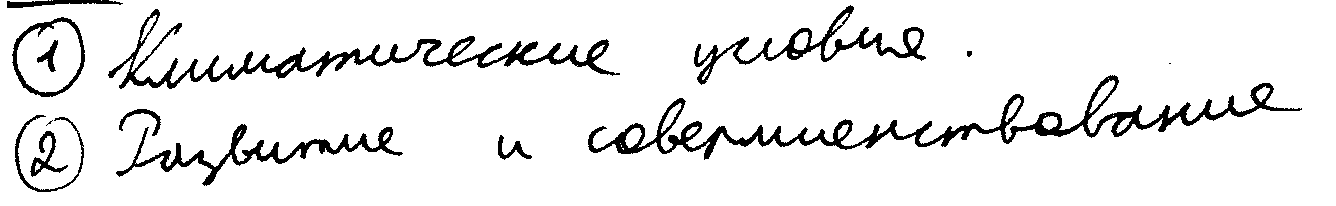 ① Климатические условия.
② Развитие и совершенствование